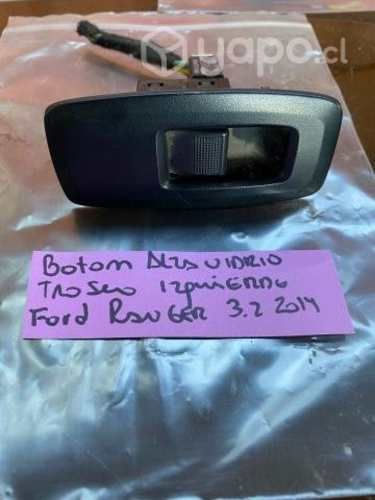 yapo.cl
Botom Alza VIDRIO
Trasero Izquierdo
Ford Ranger 3.2 2014